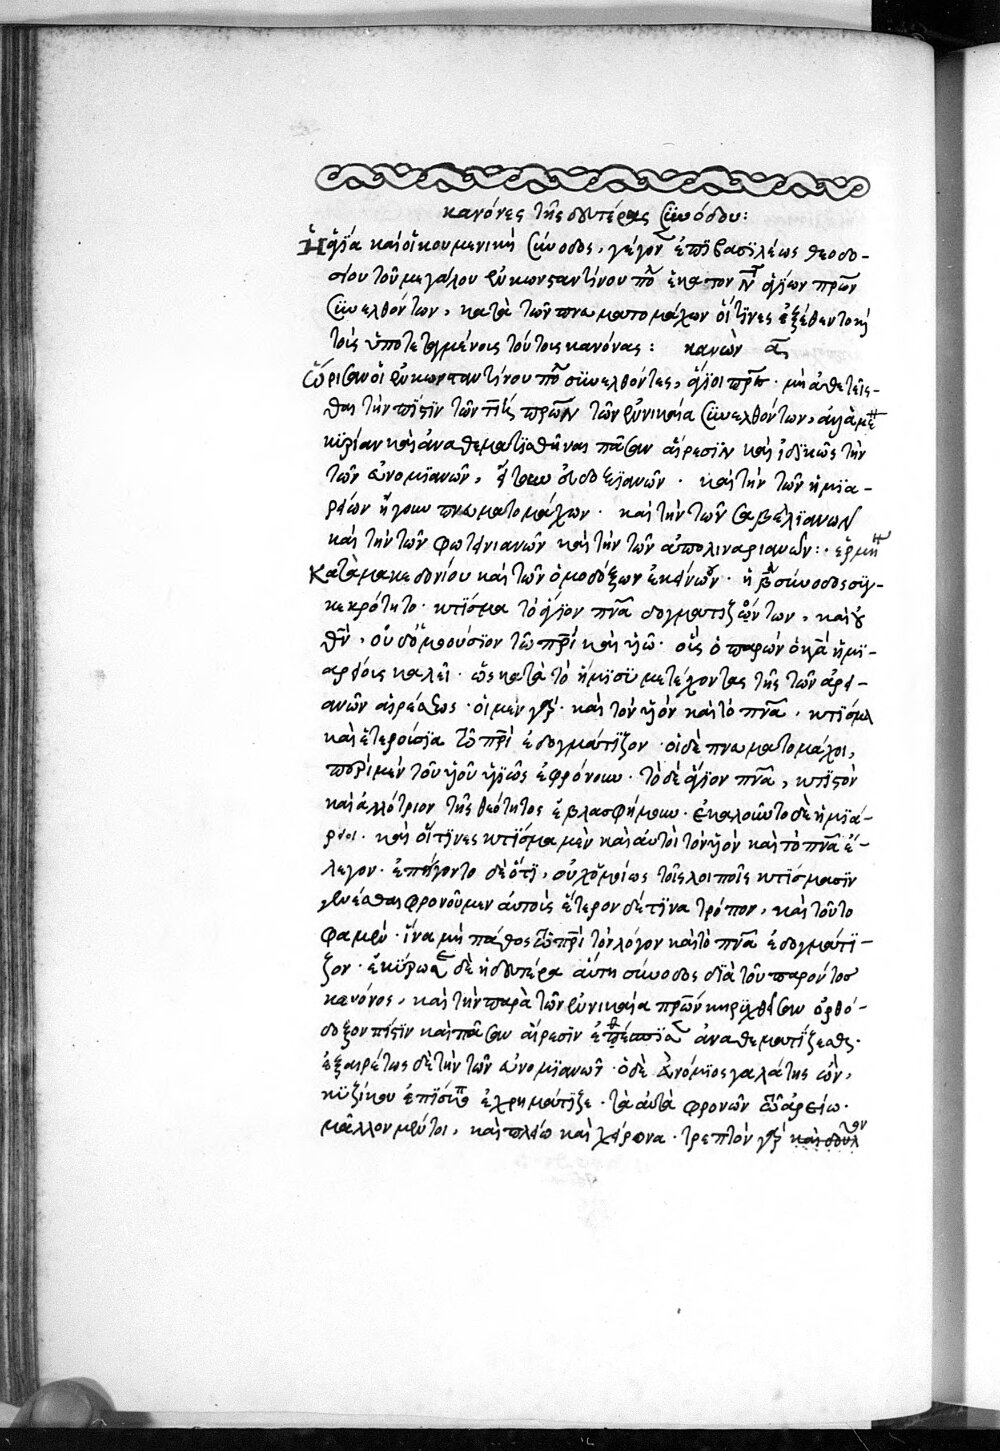 κανόνες τῆς δευτέρας συνόδου:
Ἡ ἁγία καὶ οἰκουμενικὴ σύνοδος, γέγον ἐπὶ βασιλέως θεοδο-
σίου τοῦ μεγάλου ἐν κωνσταντίνου πό ἑκατὸν ν ἁγίων πρων
συνελθόντων, κατὰ τῶν πνευματομάχων οἵτινες ἐξέθεντο κ
τοῖς ὑποτεταγμένοις τούτοις κανόνας: κανὼν α
Ὥρισαν οἱ ἐν κωνσταντίνου πό συνελθόντες, ἅγιοι πρες· μὴ ἀθετεῖς-
θαι τὴν πίστιν τῶν τιη πρων τῶν ἐν νικαία συνελθόντων, ἀλλὰ με
κυρίαν καὶ ἀναθεματισθῆναι πᾶσαν αἵρεσιν καὶ ἰδικῶς τὴν
τῶν ἀνομιανῶν, ἤτοι εὐδοξιανῶν· καὶ τὴν τῶν ἡμια-
ρείων ἤγουν πνευματομάχων· καὶ τὴν τῶν σαβελιανων
καὶ τὴν τῶν φωτεινιανῶν καὶ τὴν τῶν ἀπολιναριανῶν:· ἑρμη
Κατὰ μακεδονίου καὶ τῶν ὁμοδόξων ἐκείνων· ἡ β σύνοδος συγ-
κεκρότητο· κτίσμα τὸ ἅγιον πνα δογματιζόντων, καὶ οὐ
θν, οὐδ' ὁμοούσιον τῶ πρι καὶ υιω· οὓς ὁ παρὼν ὁ κα ἡμι-
αρείοις καλεῖ· ὡς κατὰ τὸ ἥμισυ μετέχοντας τῆς τῶν ἀρει-
ανῶν αἱρέσεως· οἱ μὲν γαρ· καὶ τὸν υἱὸν καὶ τὸ πνα, κτίσμα
καὶ ἑτεροίσια τῶ πρι ἐδογμάτιζον· οἱ δὲ πνευματομάχοι,
περὶ μὲν τοῦ υἱοῦ ὑγιῶς ἐφρόνουν· τὸ δὲ ἅγιον πνα, κτιστὸν
καὶ ἀλλότριον τῆς θεότητος ἐβλασφήμουν· ἐκαλοῦντο δὲ ἡμιά-
ρειοι· καὶ οἵτινες κτίσμα μὲν καὶ αὐτοὶ τὸν υἱὸν καὶ τὸ πνα ἔ-
λεγον· ἐπήγοντο δὲ ὅτι, οὐχ ὁμοίως τοῖς λοιποῖς κτίσμασιν
γενέσθαι φρονοῦμεν αὐτοὶς ἕτερον δέ τινα τρόπον, καὶ τοῦτο
φαμὲν· ἵνα μὴ πάθος τῶ πρι τὸν λόγον καὶ τὸ πνα ἐδογμάτι-
ζον· ἐκύρωσε δὲ ἡ δευτέρα αὕτη σύνοδος διὰ τοῦ παρόντος
κανόνος, καὶ τὴν παρὰ τῶν ἐν νικαία πρων κηρυχθεῖσαν ὀρθό-
δοξον πίστιν καὶ πᾶσαν αἵρεσιν ἀναθεματίζεσθαι·
ἐξαιρέτως δὲ τὴν τῶν ἀνομιανῶν· ὁ δὲ ἀνόμιος γαλάτης ὢν,
κυζίκου ἐπίσκοπ ἐχρημάτιζε· τὰ αὐτὰ φρονῶν τῶ ἀρείω·
μᾶλλον μέντοι, καὶ πλείω καὶ χείρονα· τρεπτὸν γαρ καὶ δουλον